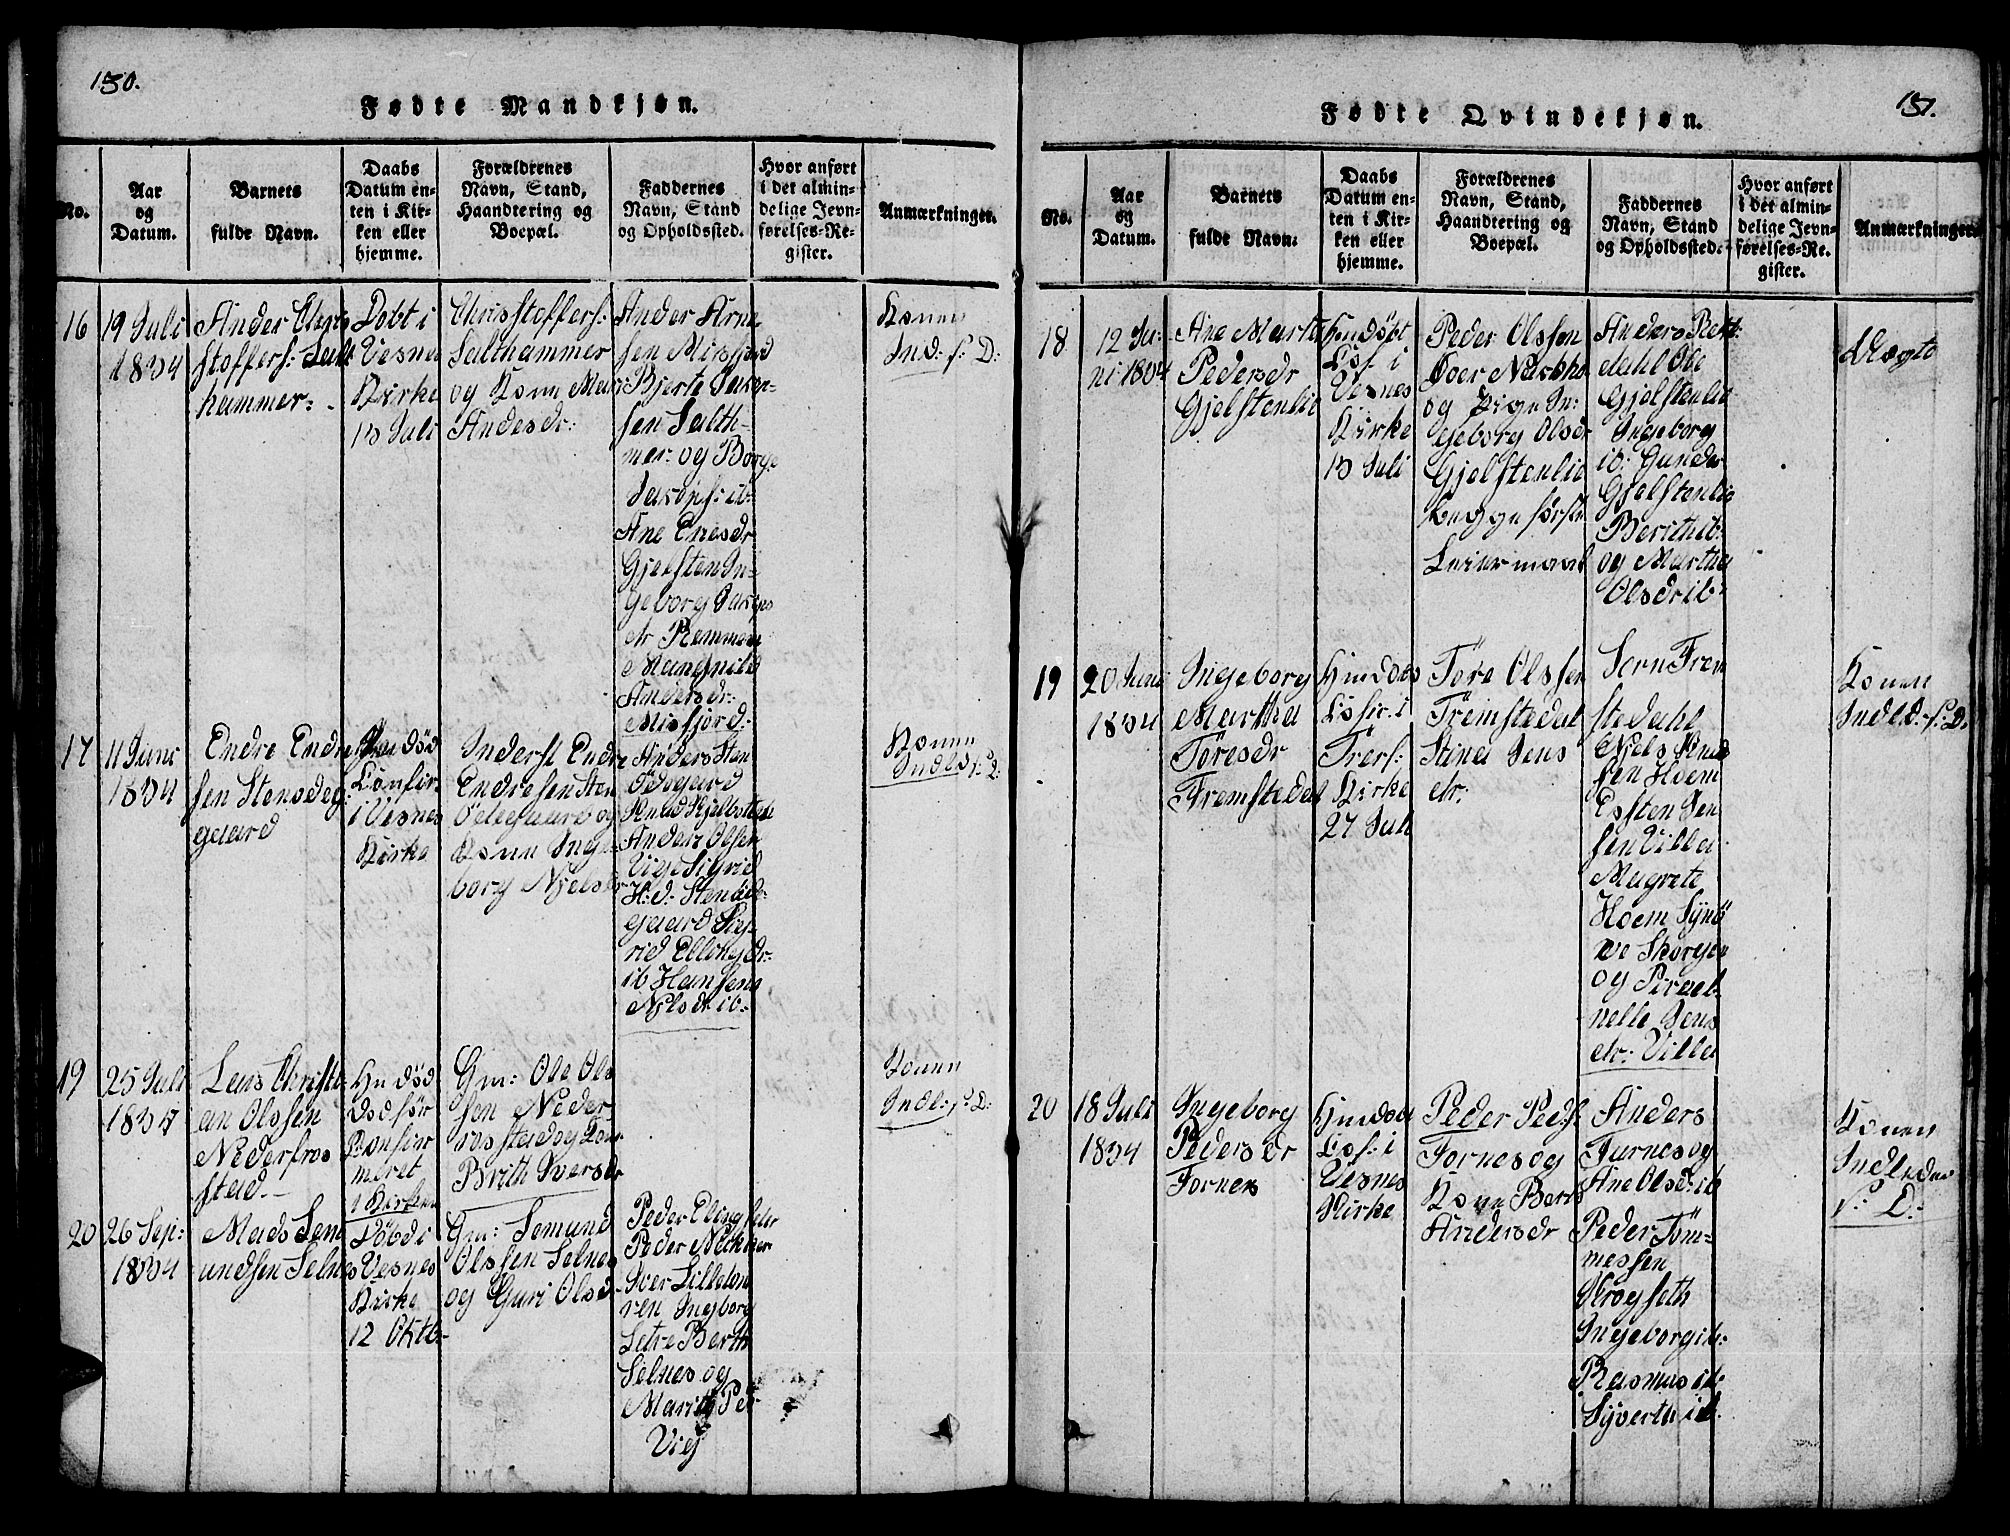 130.
Fødte Mandkjøn.
No.
Aar
og
Datum.
Barnets
fulde Navn.
Daabs
Datum en-
ten i Kir-
ken eller
hjemme.
Forældrenes
Navn, Stand,
Haandtering og
Boepæl.
Faddernes
Navn, Stand
og Opholdssted.
Hvor anført
i det almin-
delige Jevn-
førelses-Re-
gister.
Anmærkninger.
16
19 Juli
1834
Ander Christo
stoffers: Salt
hammer.
Døbt i
Vesnes
Kirke
13 Juli
Christoffers:
Salthammer
og Kone Mari
Andesdr:
Ander Arne
sen Misfjord
Bjerte Jacob
sen Salth-
mer: og Børge
Jacops: ib:
Ane Enesdr
Gjelsten In-
geborg Jacops
dr Remmem
Magnild
Andersdr:
Misfjord:
Konen
Ind: f: D:
17
11 Juni
1834
Endre Endre
sen Stensødeg
gaard
Hm død
Confir.
i Vesnes
Kirke
Inderst Endre
Endresen Sten
Ödeegaard og
Kone Inge
borg Njelsdr
Anders Sten
Ödegaard
Knud Kjelbotten
Ander Olsen
Vige Sigrid
H: d: Stenöde
gaard Sig-
rid Ellingsdr:
ib Hansena
Nilsdr ib:
Konen
Indld f: D:
19
25 Juli
1834
Lars Christi
an Olssen
Nederfros
stad.
Hm død
Død før
Konfir
meret
i Kirken
Gm: Ole Ols
sen Neder
rosstad og Kone
Brith Iversdr
Konen
Indl: f: D:
20
26 Sep:
1834
Mads Sem
undsen Selnes
Døbd i
Vesnes
Kirke
12 Oktb:
Gm: Semund
Olssen Selnes
og Guri Olsd
Peder Elingsæter
Peder Nakken
Iver Lilleton
ven Ingborg
Setre Berth
Selnes og
Marith Per
Viej
131.
Fødte Qvindekjøn.
No.
Aar
og
Datum.
Barnets
fulde Navn.
Daabs
Datum en-
ten i Kir-
ken eller
hjemme.
Forældrenes
Navn, Stand,
Haandtering og
Boepæl.
Faddernes
Navn, Stand
og Opholdssted.
Hvor anført
i det almin-
delige Jevn-
førelses-Re-
gister.
Anmærkninger
18
12 Ju:
ni 1834
Ane Marta
Pedersdr
Gjelstenlie
Hm döbt
Cof: i
Vesnes
Kirke
13 Juli
Peder Olssen
Over Nakkho
og pige In:
geborg Olsdr
Gjelstenlie
begge første
Leiermaal
Anders Rek
dahl Ole
Gjelstenlie
Ingeborg
ib: Gunder
Gjelstenlie
Berith ib:
og Martha
Olsdr ib:
Uægte
19
20 Juni
1834
Ingeborg
Martha
Töresdr
Fremstedal
Hm döbt
Cofir: i
Trers:
Kirke
27 Juli
Töre Olssen
Fremstedal
Stina Jens
dr.
Jern Frem
stedahl
Niels Knud
sen Hoem
Esten Jen
sen Villa
Magrete
Hoem Synö
ve Skorgen
og Peraeb
nelle Jens
dr: Villa
Konen
Indld: f: D:
20
18 Juli
1834
Ingeborg
Pedersdr
Fornes
Hm dobt
Cof: i
Vesnes
Kirke
Peder Peds
Fornes og
Kone Berit
Andersdr
Anders
Furnes og
Ane Olsd: ib
Peder Töm-
messen
Vrogseth
Ingeborg ib:
Rasmus ib:
Syverth ib.
Konen
Indleder
f: D: